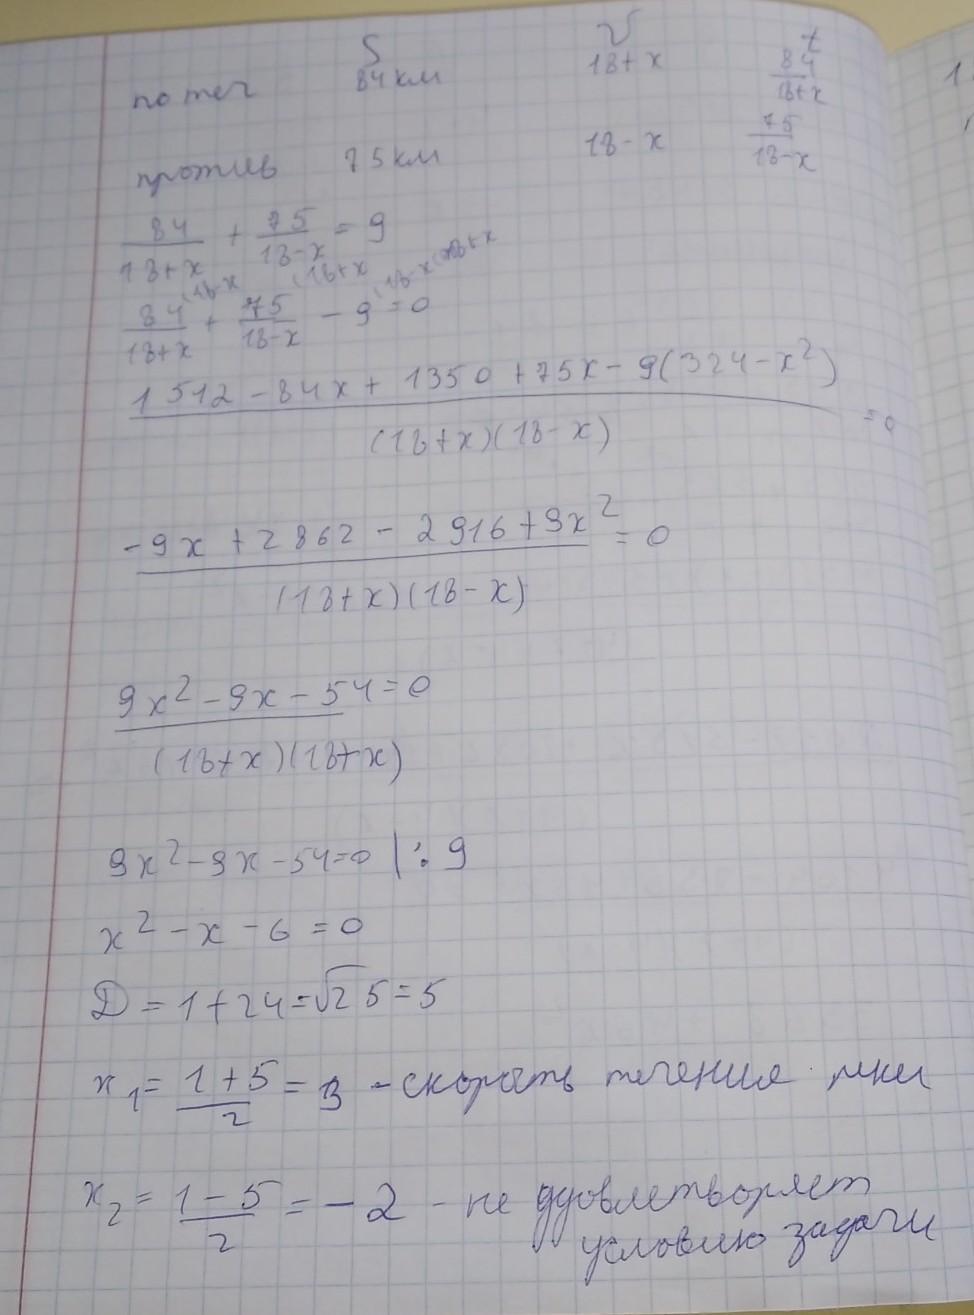 S V t
по теч 84 км 18+x 84/18+x
против 75 км 18-x 75/18-x
84/18+x + 75/18-x = 9
84/18+x (18-x + 75/18-x (18+x - 9 (18-x (18+x = 0
1512-84x+1350+75x-9(324-x²)/(18+x)(18-x) = 0
-9x+2862-2916+9x²/(18+x)(18-x) = 0
9x²-9x-54=0/(18+x)(18+x)
9x²-9x-54=0 |:9
x²-x-6=0
D=1+24=√25=5
x₁=1+5/2=3 - скорость течения реки
x₂=1-5/2=-2 - не удовлетворяет
условию задачи
1